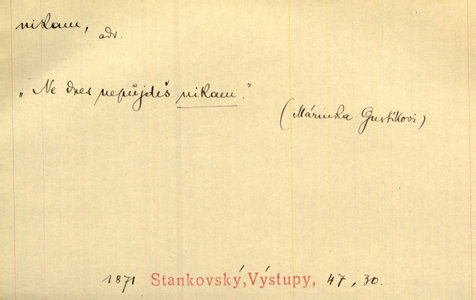 nikam, adv.
„Ne dnes nepůjdeš nikam."
(Márinka Gustíkovi)
1871 Stankovský, Výstupy, 47, 30.